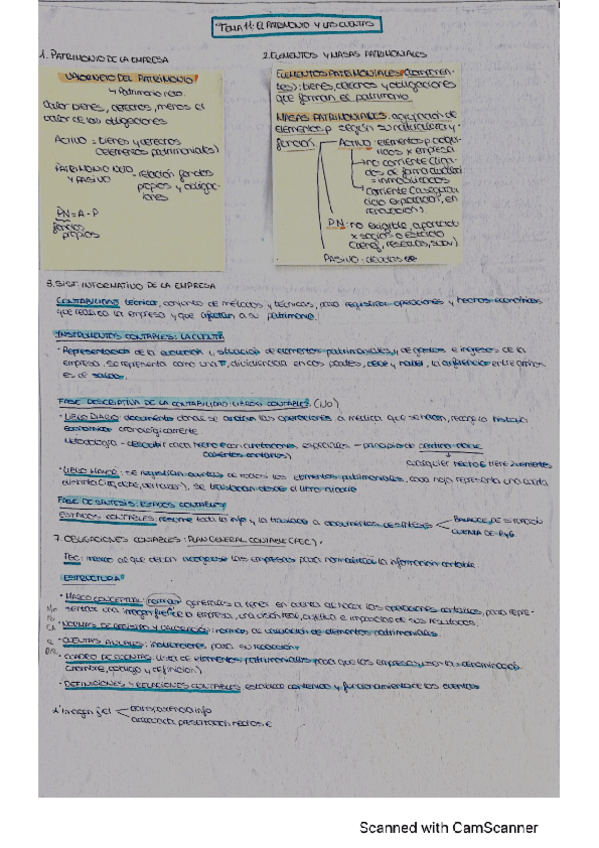 TEMA 11: EL PATRIMONIO Y LAS CUENTAS
1. PATRIMONIO DE LA EMPRESA
VALOR NETO DEL PATRIMONIO
↳ Patrimonio neto.
Valor bienes, derechos, menos el
valor de las obligaciones
ACTIVO = bienes y derechos
(elementos patrimoniales)
PATRIMONIO NETO
Y PASIVO = relación fondos
propios y obligac-
iones
PN = A - P
fondos
propios
2. ELEMENTOS Y MASAS PATRIMONIALES
ELEMENTOS PATRIMONIALES
bienes, derechos y obligaciones
que forman el patrimonio
MASAS PATRIMONIALES: agrupación de
elementos p según su naturaleza y
función
ACTIVO: elementos p
x empresa
no corriente
= inmovilizados
corriente
ciclo explotación, en
PN: no exigible, aportado
x socios o
reservas,
PASIVO: deudas
3. SIST. INFORMATIVO DE LA EMPRESA
CONTABILIDAD: técnica, conjunto de métodos y técnicas, para registrar operaciones y hechos económicos
que realiza la empresa y que afectan a su patrimonio.
INSTRUMENTOS CONTABLES: LA CUENTA
· Representación de la evolución y situación de elementos patrimoniales y de gastos e ingresos de la
empresa. Se representa como una T, dividida en dos partes, debe y haber, la diferencia entre ambos
es el saldo.
FASE DESCRIPTIVA DE LA CONTABILIDAD: LIBROS CONTABLES. (No)
· LIBRO DIARIO: documento donde se anotan las operaciones a medida que se hacen, recoge la historia
económica cronológicamente.
Metodología - describir cada hecho econ. - principio de partida doble
(asientos contables)
cualquier hecho E tiene 2 vertientes
· LIBRO MAYOR: se registran cuentas de todos los elementos patrimoniales, cada hoja representa una cuenta
distinta, se trasladan desde el libro diario
FASE DE SÍNTESIS: ESTADOS CONTABLES
ESTADOS CONTABLES: resume toda la info y la traslada a documentos de síntesis
BALANCE DE SITUACIÓN
CUENTA DE PyG
7. OBLIGACIONES CONTABLES: PLAN GENERAL CONTABLE (PGC).
PGC: marco al que deben acogerse las empresas para normalizar la información contable.
ESTRUCTURA
· MARCO CONCEPTUAL: normas generales a tener en cuenta al hacer las operaciones contables, para repre-
sentar una imagen fiel de la empresa, una visión real, objetiva e imparcial de sus resultados.
· NORMAS DE REGISTRO Y VALORACIÓN: normas de valoración de elementos patrimoniales.
· CUENTAS ANUALES: indicaciones para su redacción
· CUADRO DE CUENTAS: lista de elementos patrimoniales para que las empresas usen la denominación
(nombre, código y definición)
· DEFINICIONES Y RELACIONES CONTABLES: establece contenido y funcionamiento de las cuentas
* Imagen fiel
transparencia info
adecuada presentación hechos E
Scanned with CamScanner